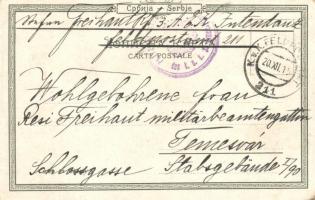 Србија — Serbje
Freihaut 3. A. o. K. Intendanz
Feldpostamt 211
CARTE POSTALE
K.u.K. FELD
20.XII.15
211
Wohlgeborene Frau
Resi Freihaut militärbeamtengattin
Temesvár
Schlossgasse Stabsgebäude I/90